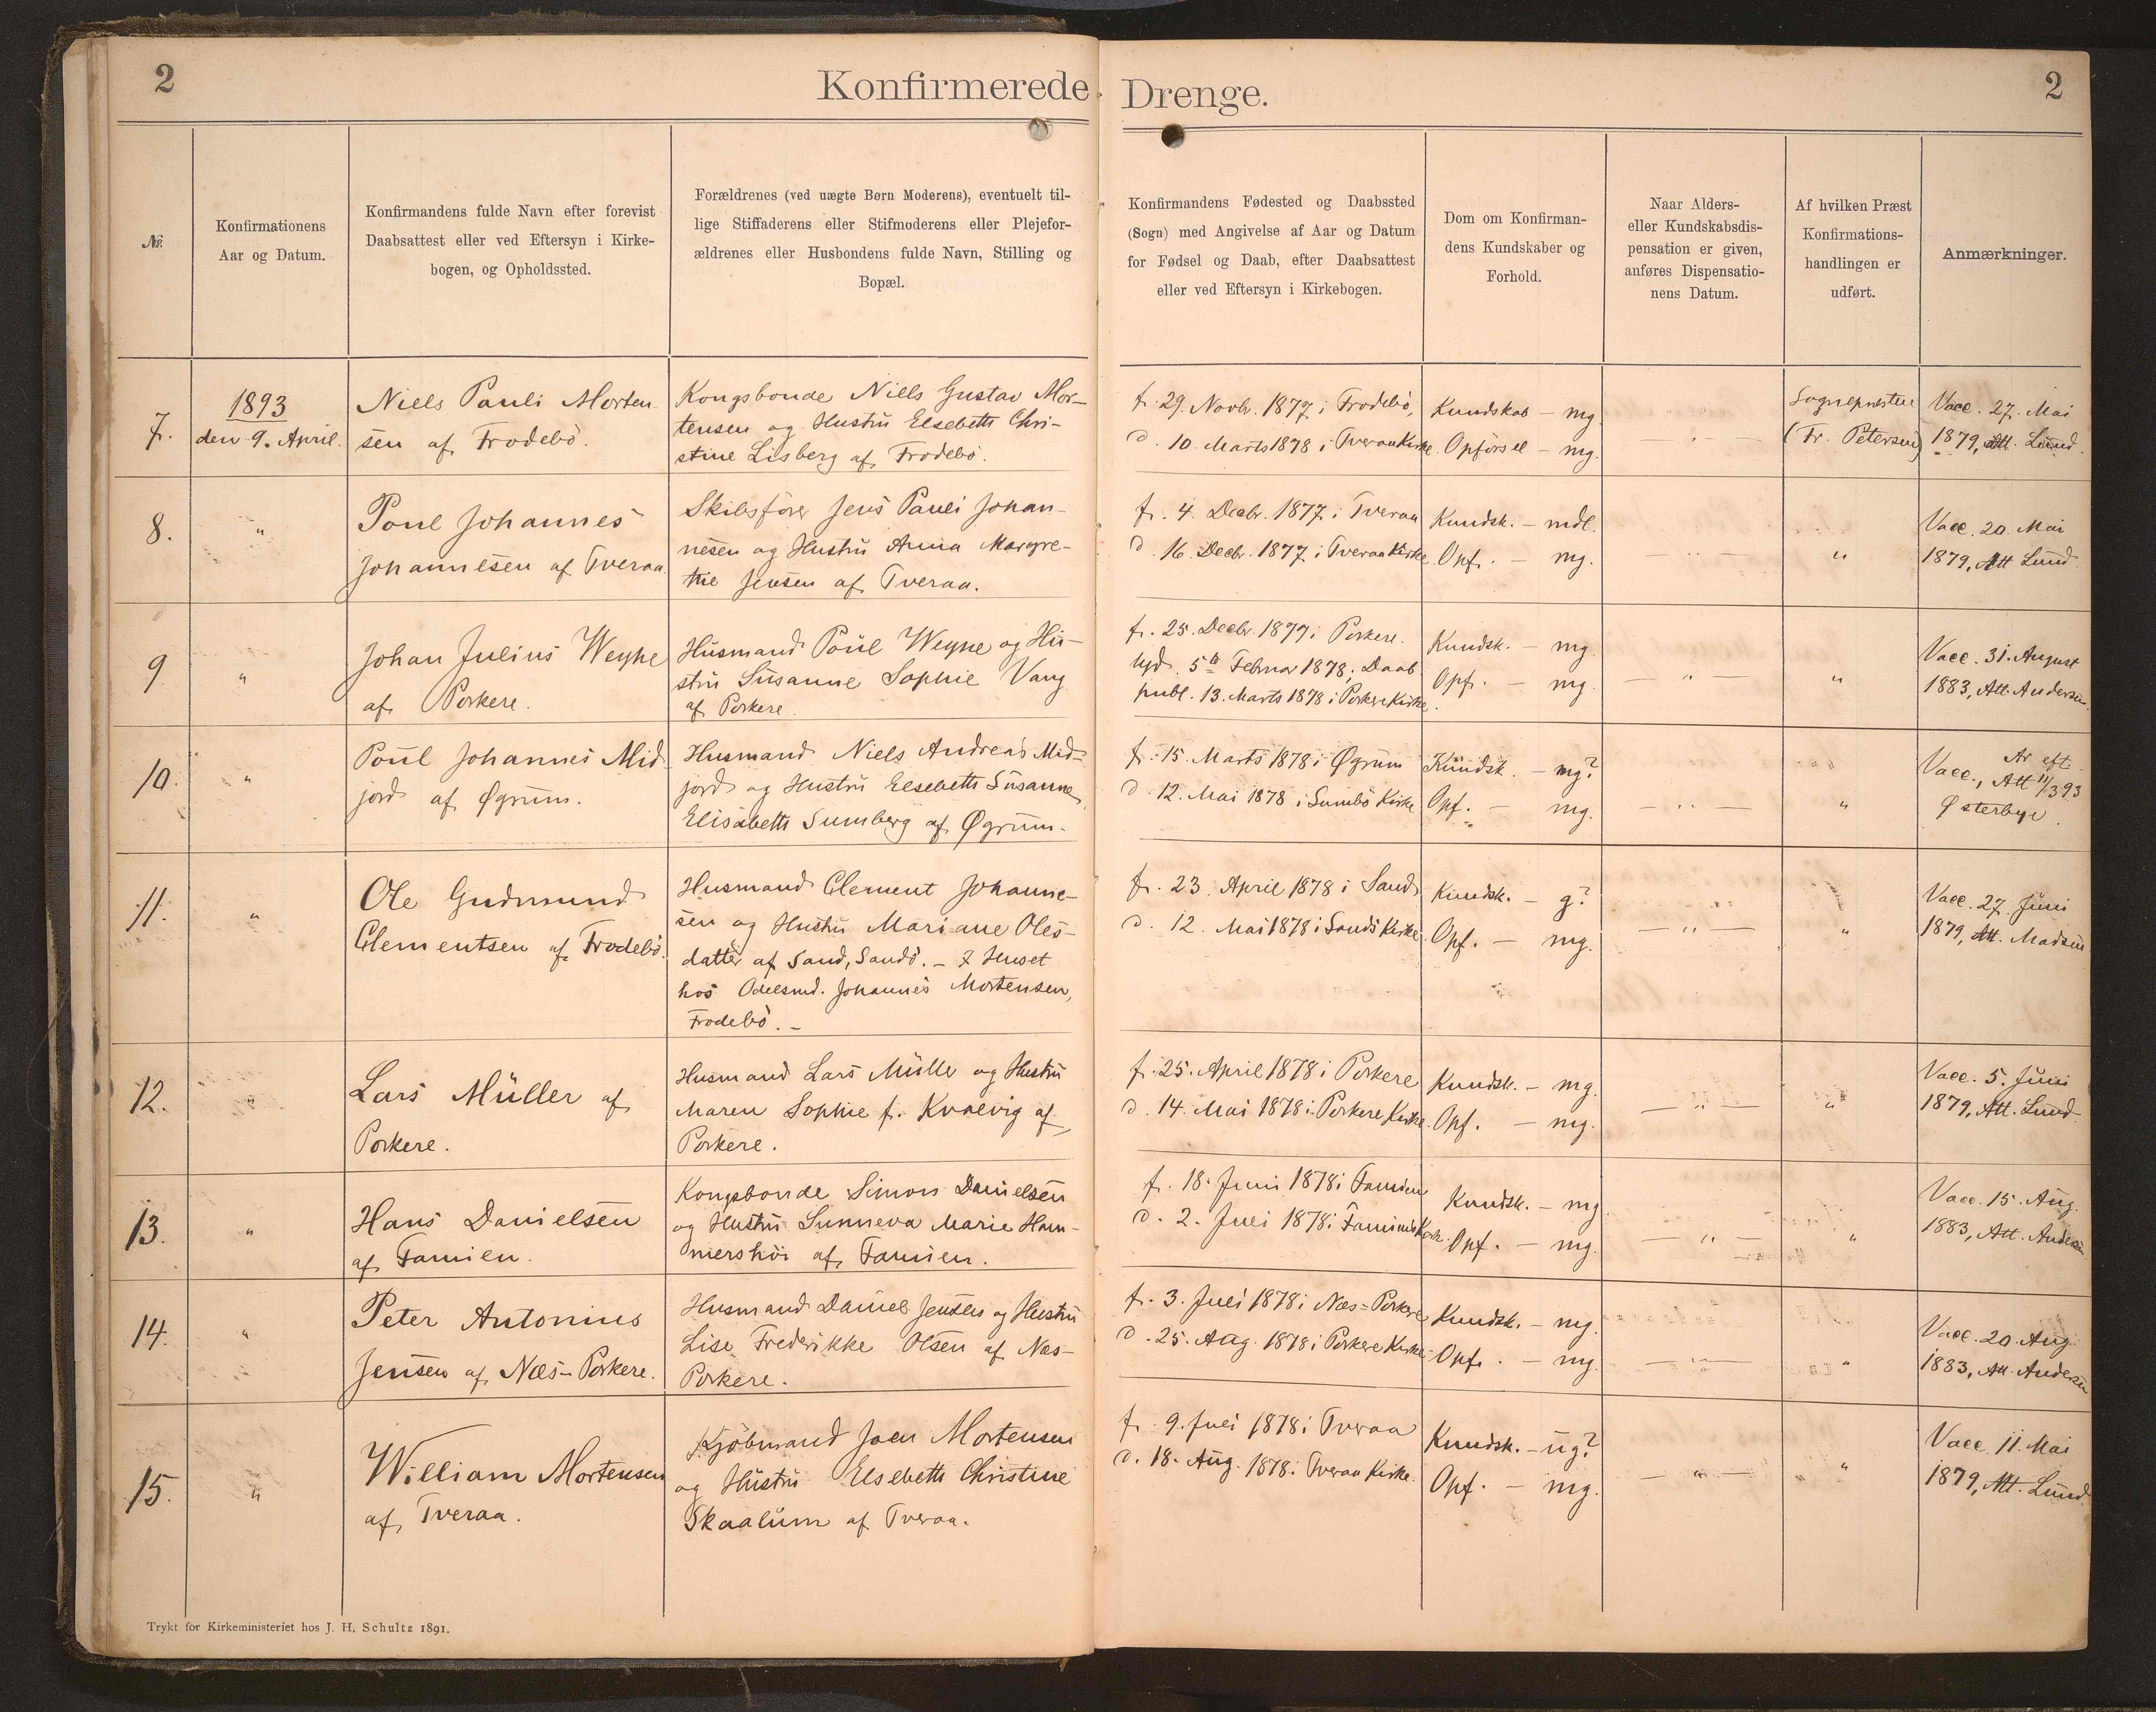 2
Konfirmerede Drenge.
2
№.
Konfirmationens
Aar og Datum.
Konfirmandens fulde Navn efter forevist
Daabsattest eller ved Eftersyn i Kirke-
bogen, og Opholdssted.
Forældrenes (ved uægte Børn Moderens), eventuelt til-
lige Stiffaderens eller Stifmoderens eller Plejefor-
ældrenes eller Husbondens fulde Navn, Stilling og
Bopæl.
Konfirmandens Fødested og Daabssted
(Sogn) med Angivelse af Aar og Datum
for Fødsel og Daab, efter Daabsattest
eller ved Eftersyn i Kirkebogen.
Dom om Konfirman-
dens Kundskaber og
Forhold.
Naar Alders-
eller Kundskabsdis-
pensation er given,
anføres Dispensatio-
nens Datum.
Af hvilken Præst
Konfirmations-
handlingen er
udført.
Anmærkninger.
7.
1893
den 9. April.
Niels Pauli Morten-
sen af Frodebö.
Kongsbonde Niels Gustav Mor-
tensen og Hustru Elsebeth Chri-
stine Lisberg af Frodebö.
f. 29. Novbr. 1877 i Frodebö,
d. 10. Marts 1878 i Tveraa Kirke.
Kundskab - mg.
Opförsel - mg.
- " -
Sognepræsten
(Fr. Petersen)
Vacc. 27. Mai
1879, Att. Lund.
8.
"
Poul Johannes
Johannesen af Tveraa.
Skibsfören Jens Pauli Johan-
nesen og Hustru Anna Margre-
the Jensen af Tveraa.
f. 4. Decbr. 1877 i Tveraa
d. 16. Decbr. 1877 i Tveraa Kirke
Kundsk. - mdl.
Opf. - mg.
- " -
"
Vacc. 20. Mai
1879, Att Lund.
9
"
Johan Julius Weyhe
af Porkere.
Husmand Poul Weyhe og Hu-
stru Susanne Sophie Vang
af Porkere.
f. 25. Decbr. 1877 i Porkere.
Hjd. 5te Februar 1878; Daab.
publ. 13. Marts 1878 i Porkere Kirke.
Kundsk. - mg.
Opf. - mg.
- " -
"
Vacc. 31. August
1883, Att. Andersen.
10.
"
Poul Johannes Mid-
jord af Øgrum.
Husmand Niels Andreas Mid-
jord og Hustru Elsebeth Susanne
Elisabeth Sumberg af Øgrum.
f. 15. Marts 1878 i Øgrum
d. 12. Mai 1878 i Sumbö Kirke
Kundsk. - mg?
Opf. - mg.
- " -
"
Ar eft.
Vacc., Att 11/3 93
Østerbye.
11.
"
Ole Gudmund
Clementsen af Frodebö.
Husmand Clement Johanne-
sen og Hustru Mariane Oles-
datter af Sand, Sandö. - I Huset
hos Odelsmd. Johannes Mortensen,
Frodebö. -
f. 23. April 1878 i Sand
d. 12. Mai 1878 i Sands Kirke
Kundsk. - g?
Opf. - mg.
- " -
"
Vacc. 27. Juni
1879, Att. Madsen
12.
"
Lars Müller af
Porkere.
Husmand Lars Müller og Hustru
Maren Sophie f. Kvævig af
Porkere.
f. 25. April 1878 i Porkere
d. 14. Mai 1878 i Porkere Kirke.
Kundsk. - mg.
Opf. - mg.
- " -
"
Vacc. 5. Juni
1879, Att. Lund.
13.
"
Hans Danielsen
af Famien.
Kongsbonde Simon Danielsen
og Hustru Sunneva Marie Ham-
mershöi af Famien.
f. 18. Juni 1878 i Famien
d. 2. Juli 1878 i Famiens Kirk.
Kundsk. - mg
Opf. - mg.
- " -
"
Vacc. 15. Aug.
1883, Att. Andersen
14.
"
Peter Antonius
Jensen af Næs-Porkere.
Husmand Daniel Jensen og Hustru
Lise Frederikke Olsen af Næs-
Porkere.
f. 3. Juli 1878 i Næs=Porkere
d. 25. Aug. 1878 i Porkere Kirke
Kundsk. - mg.
Opf. - mg.
- " -
"
Vacc. 20. Aug.
1883, Att. Andersen
15.
"
William Mortensen
af Tveraa.
Kjöbmand Joen Mortensen
og Hustru Elsebeth Christine
Skaalum af Tveraa.
f. 9. Juli 1878 i Tveraa
d. 18. Aug. 1878 i Tveraa Kirke.
Kundsk. - ug?
Opf. - mg.
- " -
"
Vacc. 11. Mai
1879, Att. Lund.
Trykt for Kirkeministeriet hos J. H. Schultz 1891.